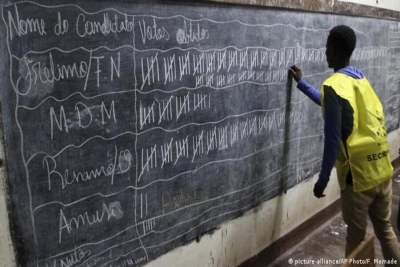 Nome do Candidato Votos obtidos
Frelimo/F.N
M.D.M
Renamo/
Amusi
Nulos
SEC
© picture-alliance/AP Photo/F. Momade